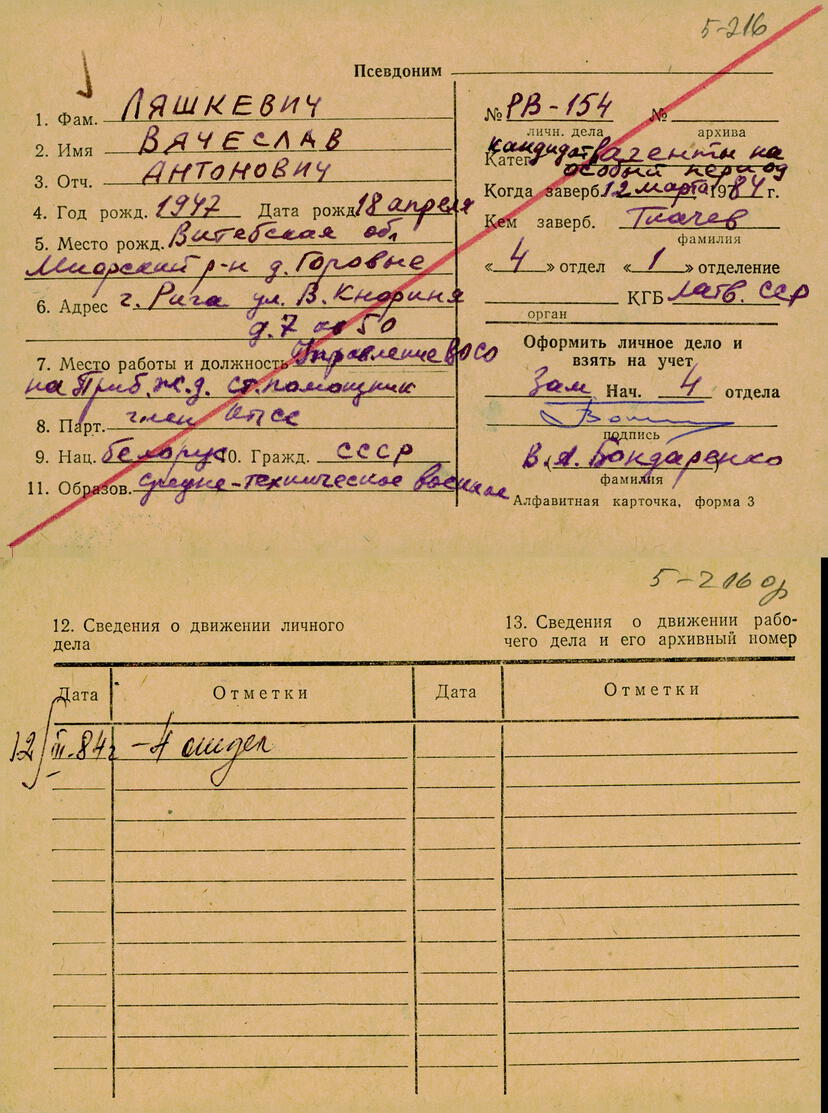 5-216
Псевдоним
1. Фам. ЛЯШКЕВИЧ
2. Имя ВЯЧЕСЛАВ
3. Отч. АНТОНОВИЧ
4. Год рожд. 1947 Дата рожд. 18 апреля
5. Место рожд. Витебская обл
Миорский р-н д. Горовые
6. Адрес г. Рига ул. В. Кнориня
д. 7 кв 50
7. Место работы и должность Управление ВОСО
на Приб. ж.д. ст. помощник
8. Парт. член КПСС
9. Нац. белорус 10. Гражд. СССР
11. Образов. средне-техническое военное
№ РВ-154 №
личн. дела архива
Катег. Кандидат в агенты на
особый период
Когда заверб. 12 марта 1984 г.
Кем заверб. Ткачев
фамилия
« 4 » отдел « 1 » отделение
КГБ Латв. ССР
орган
Оформить личное дело и
взять на учет
Зам Нач. 4 отдела
подпись
В. А. Бондаренко
фамилия
Алфавитная карточка, форма 3
5-216 об
12. Сведения о движении личного
дела
13. Сведения о движении рабо-
чего дела и его архивный номер
Дата Отметки Дата Отметки
12/III-84г - 4 отдел